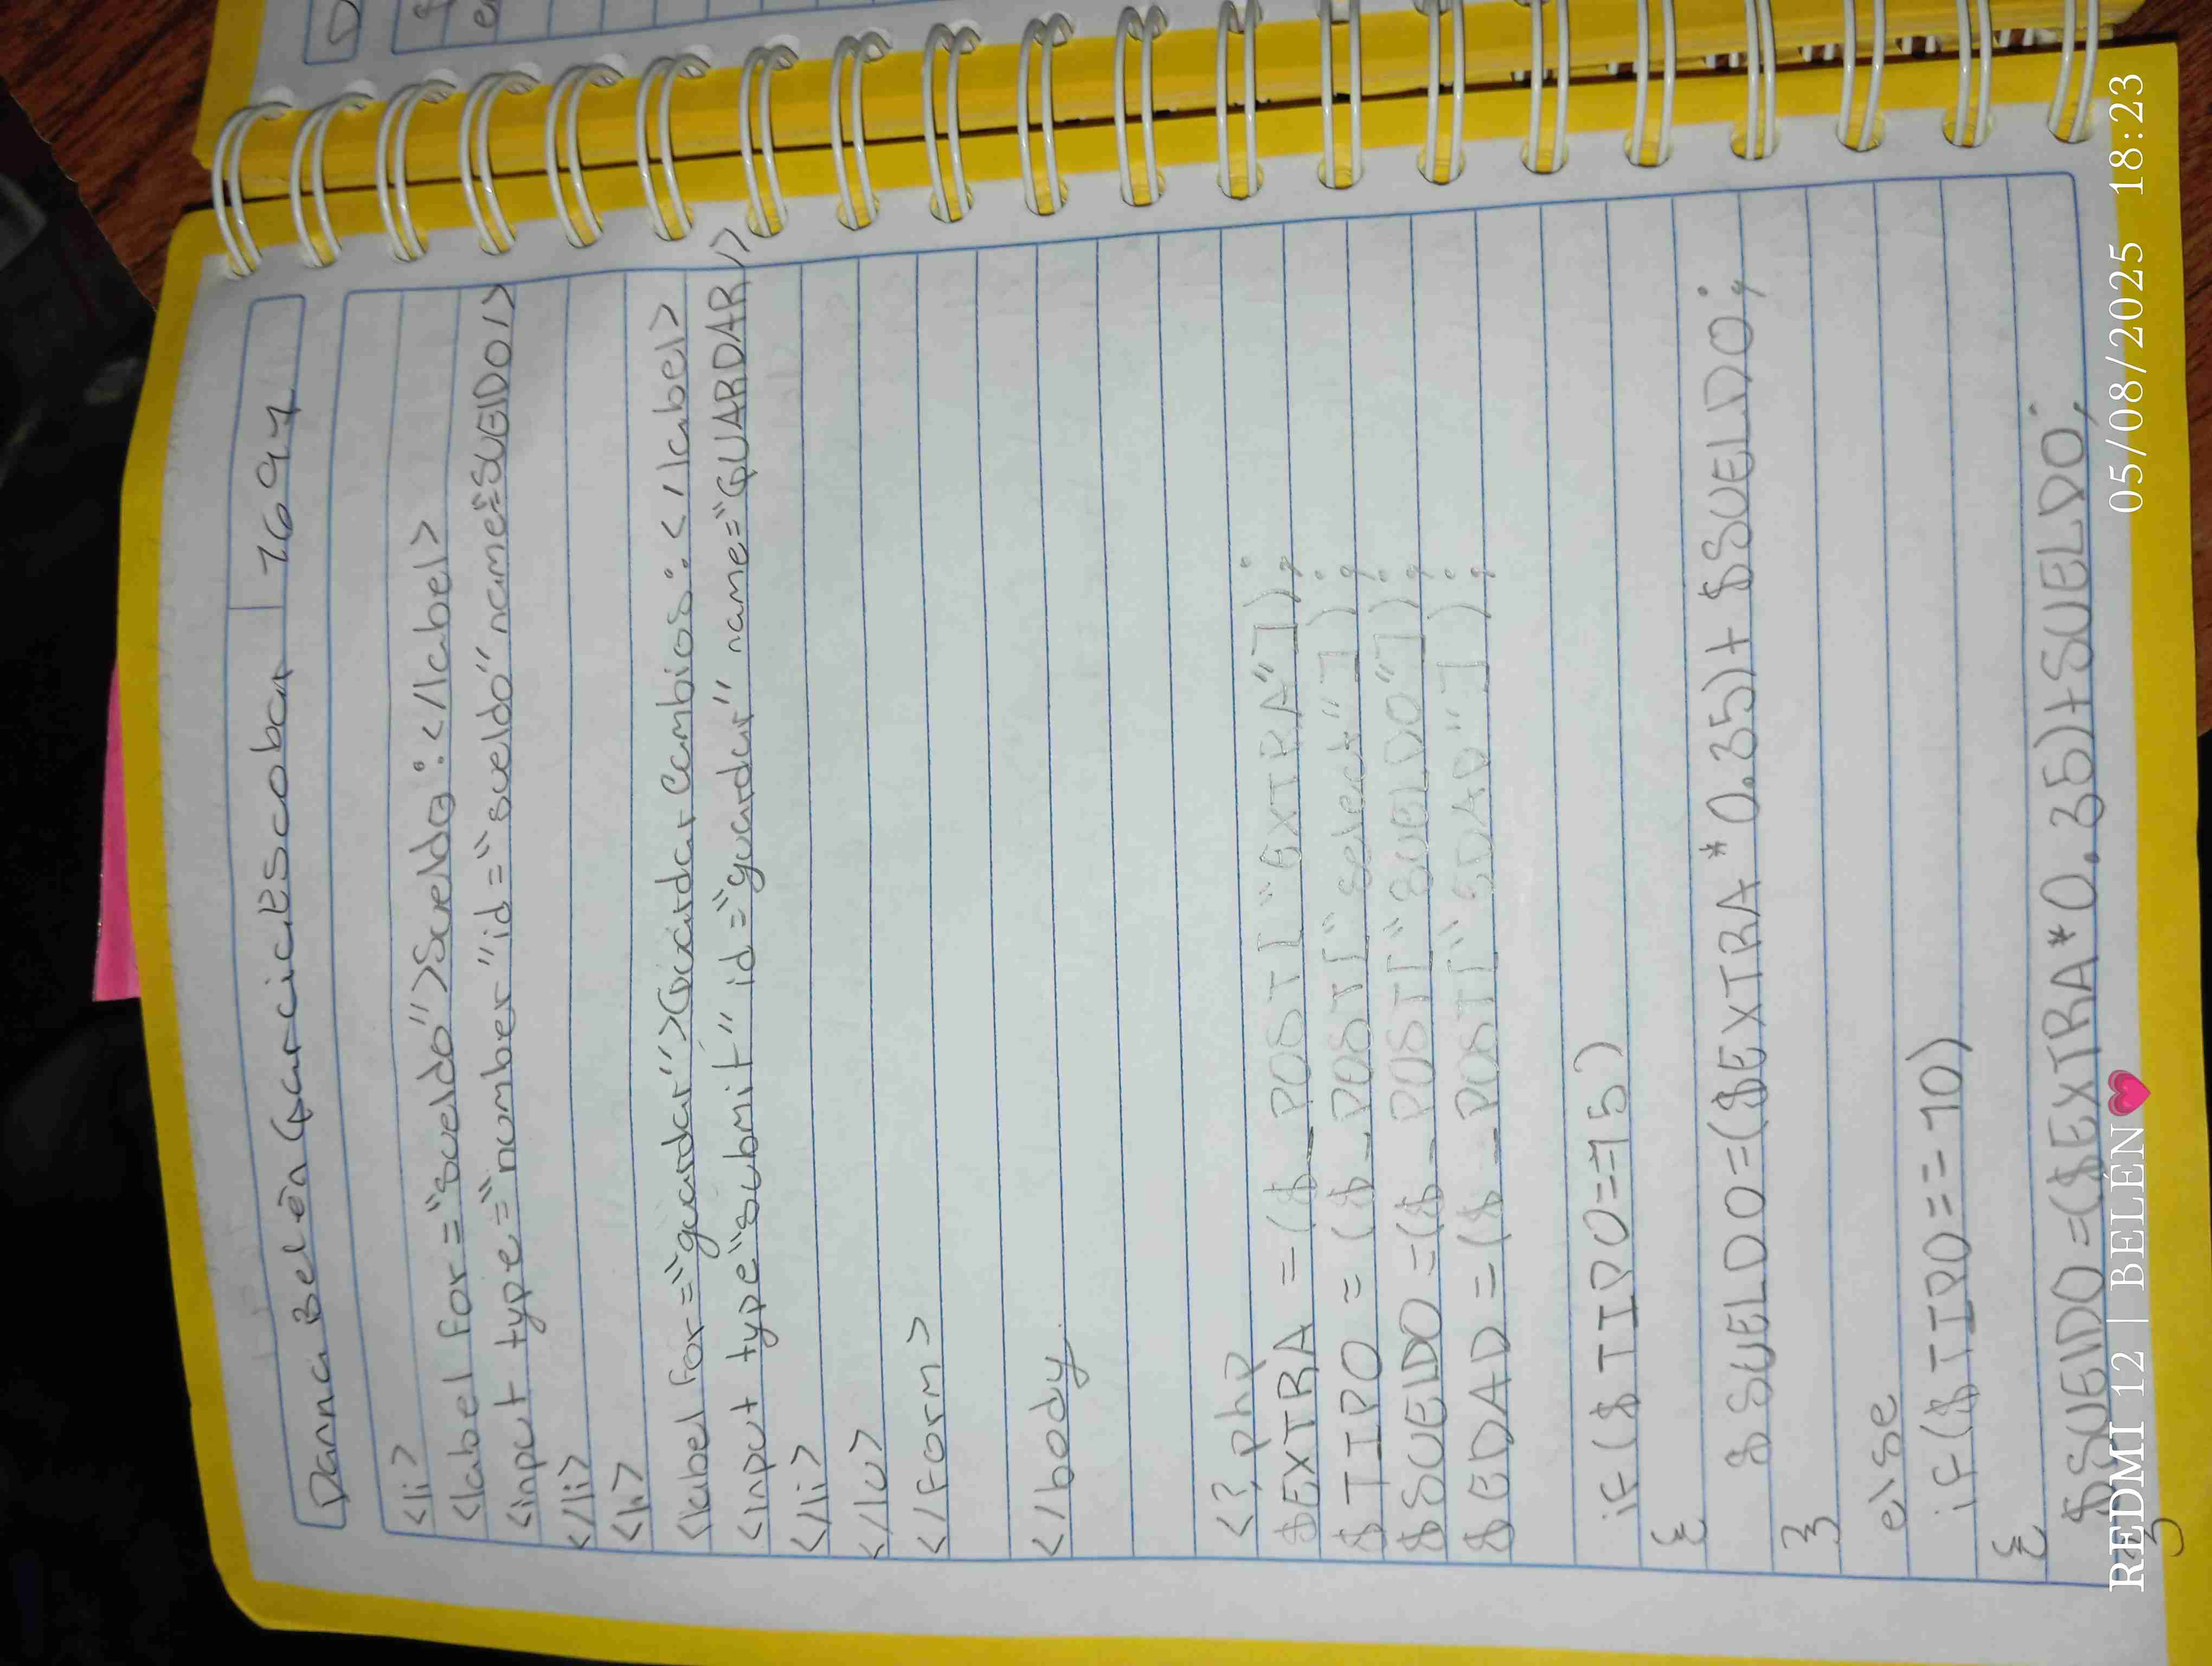 Danna Belén García Escobar 1694
<li>
<label for="sueldo">Sueldo:</label>
<input type="number "id="sueldo" name="SUELDO1/>
</li>
<li>
<label for="guardar">Guardar Cambios:</label>
<input type"submit" id="guardar" name="GUARDAR"/>
</li>
</lu>
</form>
</body
<?php
$EXTRA = ($_POST["EXTRA"]);
$TIPO = ($_POST["select"]);
$SUELDO =($_POST["SUELDO"]);
$EDAD = ($_POST["EDAD"]);
if($TIPO==15)
{
$SUELDO=($EXTRA*0.35)+$SUELDO;
}
else
if($TIPO==10)
{
$SUELDO=($EXTRA*0.35)+SUELDO;
}
REDMI 12 | BELÉN💗
05/08/2025 18:23